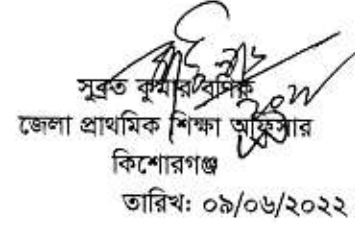 সুব্রত কুমার বণিক
জেলা প্রাথমিক শিক্ষা অফিসার
কিশোরগঞ্জ
তারিখ: ০৯/০৬/২০২২